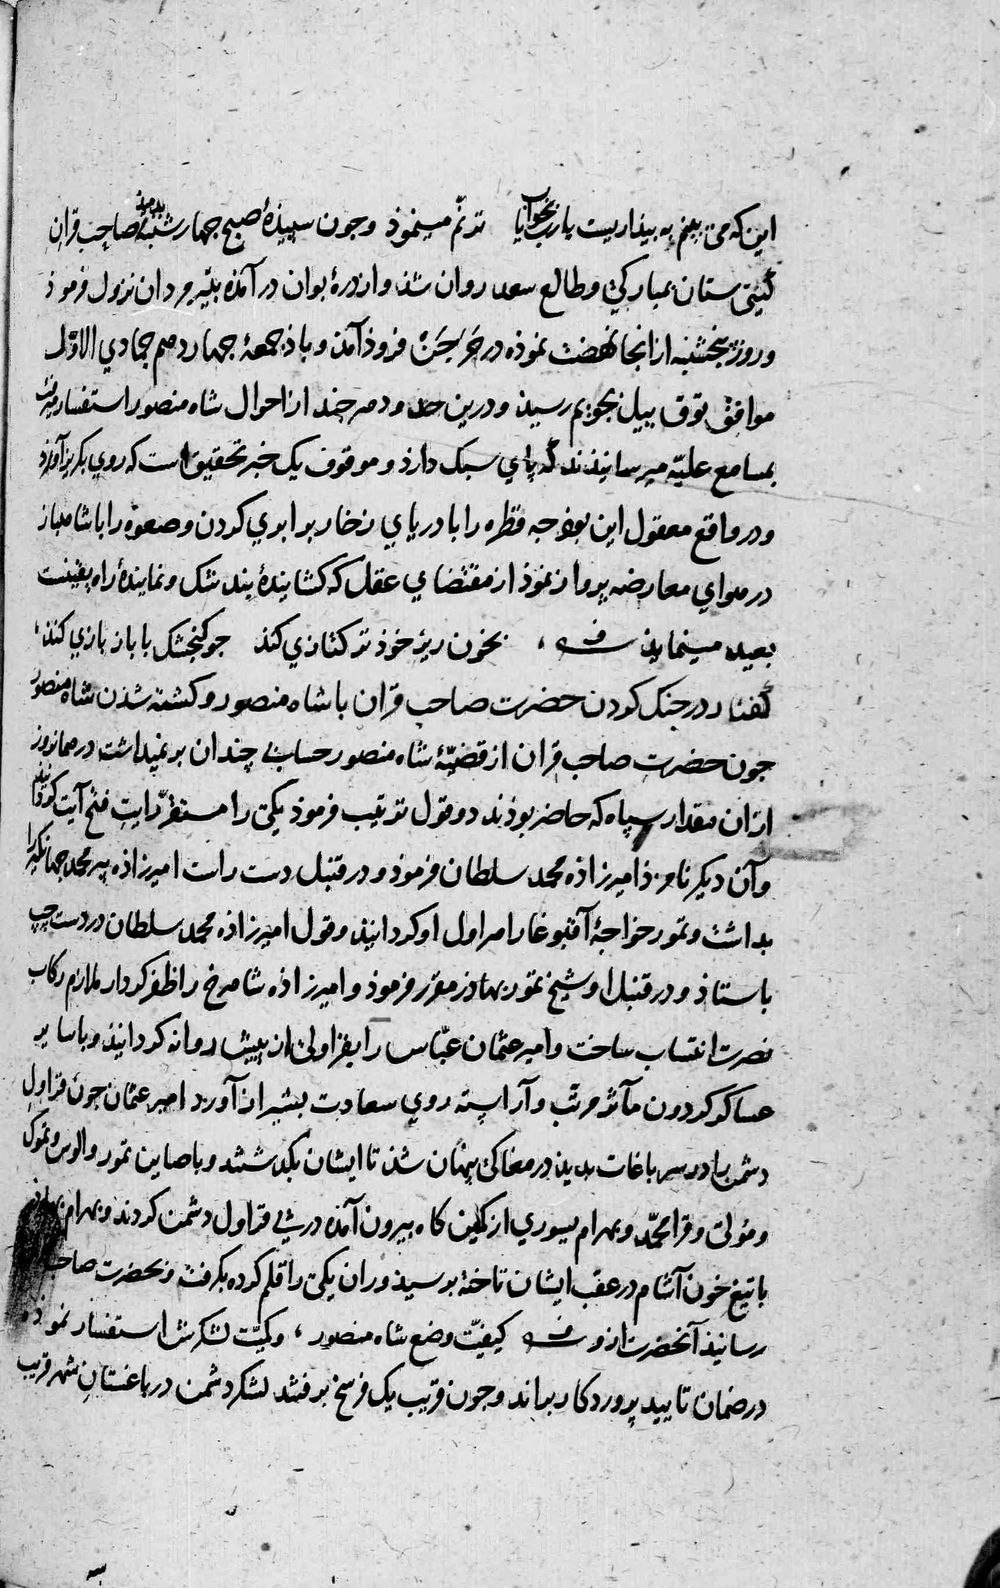 این که می بینم به بیذاریست یارب یا بخواب ترنّم مینموذ وجون سپیذهٔ صبح جهارشنبه بدمید صاحب قران
گیتی ستان بمبارکی وطالع سعد روان شذ وازدرهٔ بوان درآمذه بتیر مردان نزول فرموذ
وروز پنجشنبه ازانجا نهضت نموذه در فروذآمذ وباذ جمعهٔ جهاردهم جمادي الاوّل
موافق توق ییل بجویم رسیذ ودرین حدود مرجند ازاحوال شاه منصور استفسار میرفت
بمسامع علیّه میرسانیذند که پاي سبک دارذ وموقوف یک خبر تحقیق است که روي بکریز آورد
ودرواقع معقول این بوذ جه قطره را با دریاي زخار برابری کردن وصعوه را با شاهباز
در هواي معارضه پرواز نموذ ازمقتضاي عقل که کشایندهٔ بند شک ونمایندهٔ راه یقینست
بعید مینماید بخون ریز خوذ ترکتازي کند جو کنجشک با باز بازي کند
گفتار درجنک کردن حضرت صاحب قران باشاه منصور وکشته شذن شاه منصور
جون حضرت صاحب قران از قضیّهٔ شاه منصور حسابی چندان برنمیداشت درهمانروز
ازان مقدار سپاه که حاضر بوذند دو قول ترتیب فرموذ یکی را مستقرّ رایت فتح آیت کردانید
وآن دیکر نامزد امیرزاذه محمد سلطان فرموذ ودر قنبل دست راست امیرزاذه پیرمحمد جهانکیر را
بداشت وتمور خواجهٔ آقبوغا را هراول او کردانیذ وقول امیرزاذه محمد سلطان در دست چپ
باستاذ ودر قنبل او شیخ تمور بهادر مقرر فرموذ وامیرزاذه شاهرخ را ظفرکردار ملازم رکاب
نصرت انتساب ساخت وامیر عثمان عبّاس را بقراولی از پیش روانه کردانیذ وباسایر
عساکر کردون مآثر مرتّب وآراسته روي سعادت بشیراز آورد امیر عثمان جون قراول
دشمن را در سر باغات بدید در مغاکی پنهان شذ تا ایشان بکذشتند وباصاین تمور والوس وتموک
ومولی وقرامحمّد وبهرام یسوري از کمین کاه بیرون آمذه در پی قراول دشمن کردند وبهرام بهادر
با تیغ خون آشام درعقب ایشان تاخته برسیذ وران یکی را قلم کرده بکرفت وبحضرت صاحب
رسانیذ آنحضرت ازو کیفیّت وضع شاه منصور وکمیّت لشکرش استفسار نموذه
درضمان تایید پروردکار براند وجون قریب یک فرسخ برفتند لشکر دشمن در باغستان شهر قریب